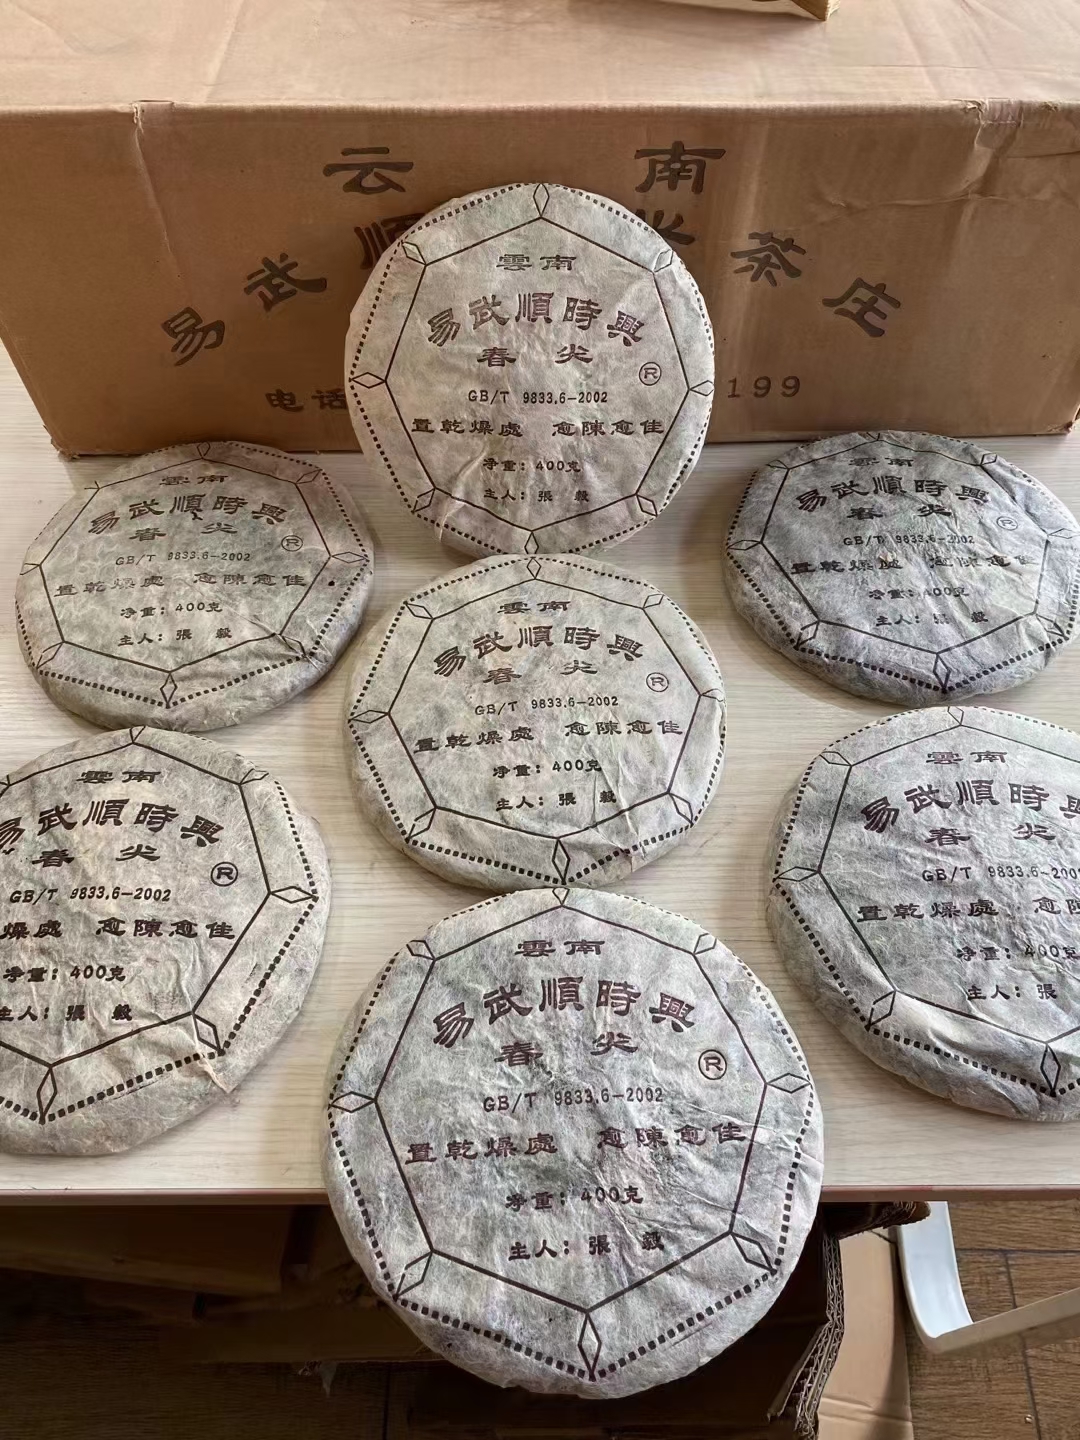 云 南
易武顺 茶庄
电话 199
雲南
易武順時興
春 尖
®
GB/T 9833.6-2002
置乾燥處 愈陳愈佳
净重:400克
主人:張 毅
雲南
易武順時興
春 尖
®
GB/T 9833.6-2002
置乾燥處 愈陳愈佳
净重:400克
主人:張 毅
雲南
易武順時興
春 尖
®
GB/T 9833.6-2002
置乾燥處 愈陳愈佳
净重:400克
主人:張 毅
雲南
易武順時興
春 尖
®
GB/T 9833.6-2002
置乾燥處 愈陳愈佳
净重:400克
主人:張 毅
雲南
易武順時興
春 尖
®
GB/T 9833.6-2002
燥處 愈陳愈佳
净重:400克
主人:張 毅
雲南
易武順時興
春 尖
GB/T 9833.6-2002
置乾燥處 愈陳
净重:400克
主人:張
雲南
易武順時興
春 尖
®
GB/T 9833.6-2002
置乾燥處 愈陳愈佳
净重:400克
主人:張 毅